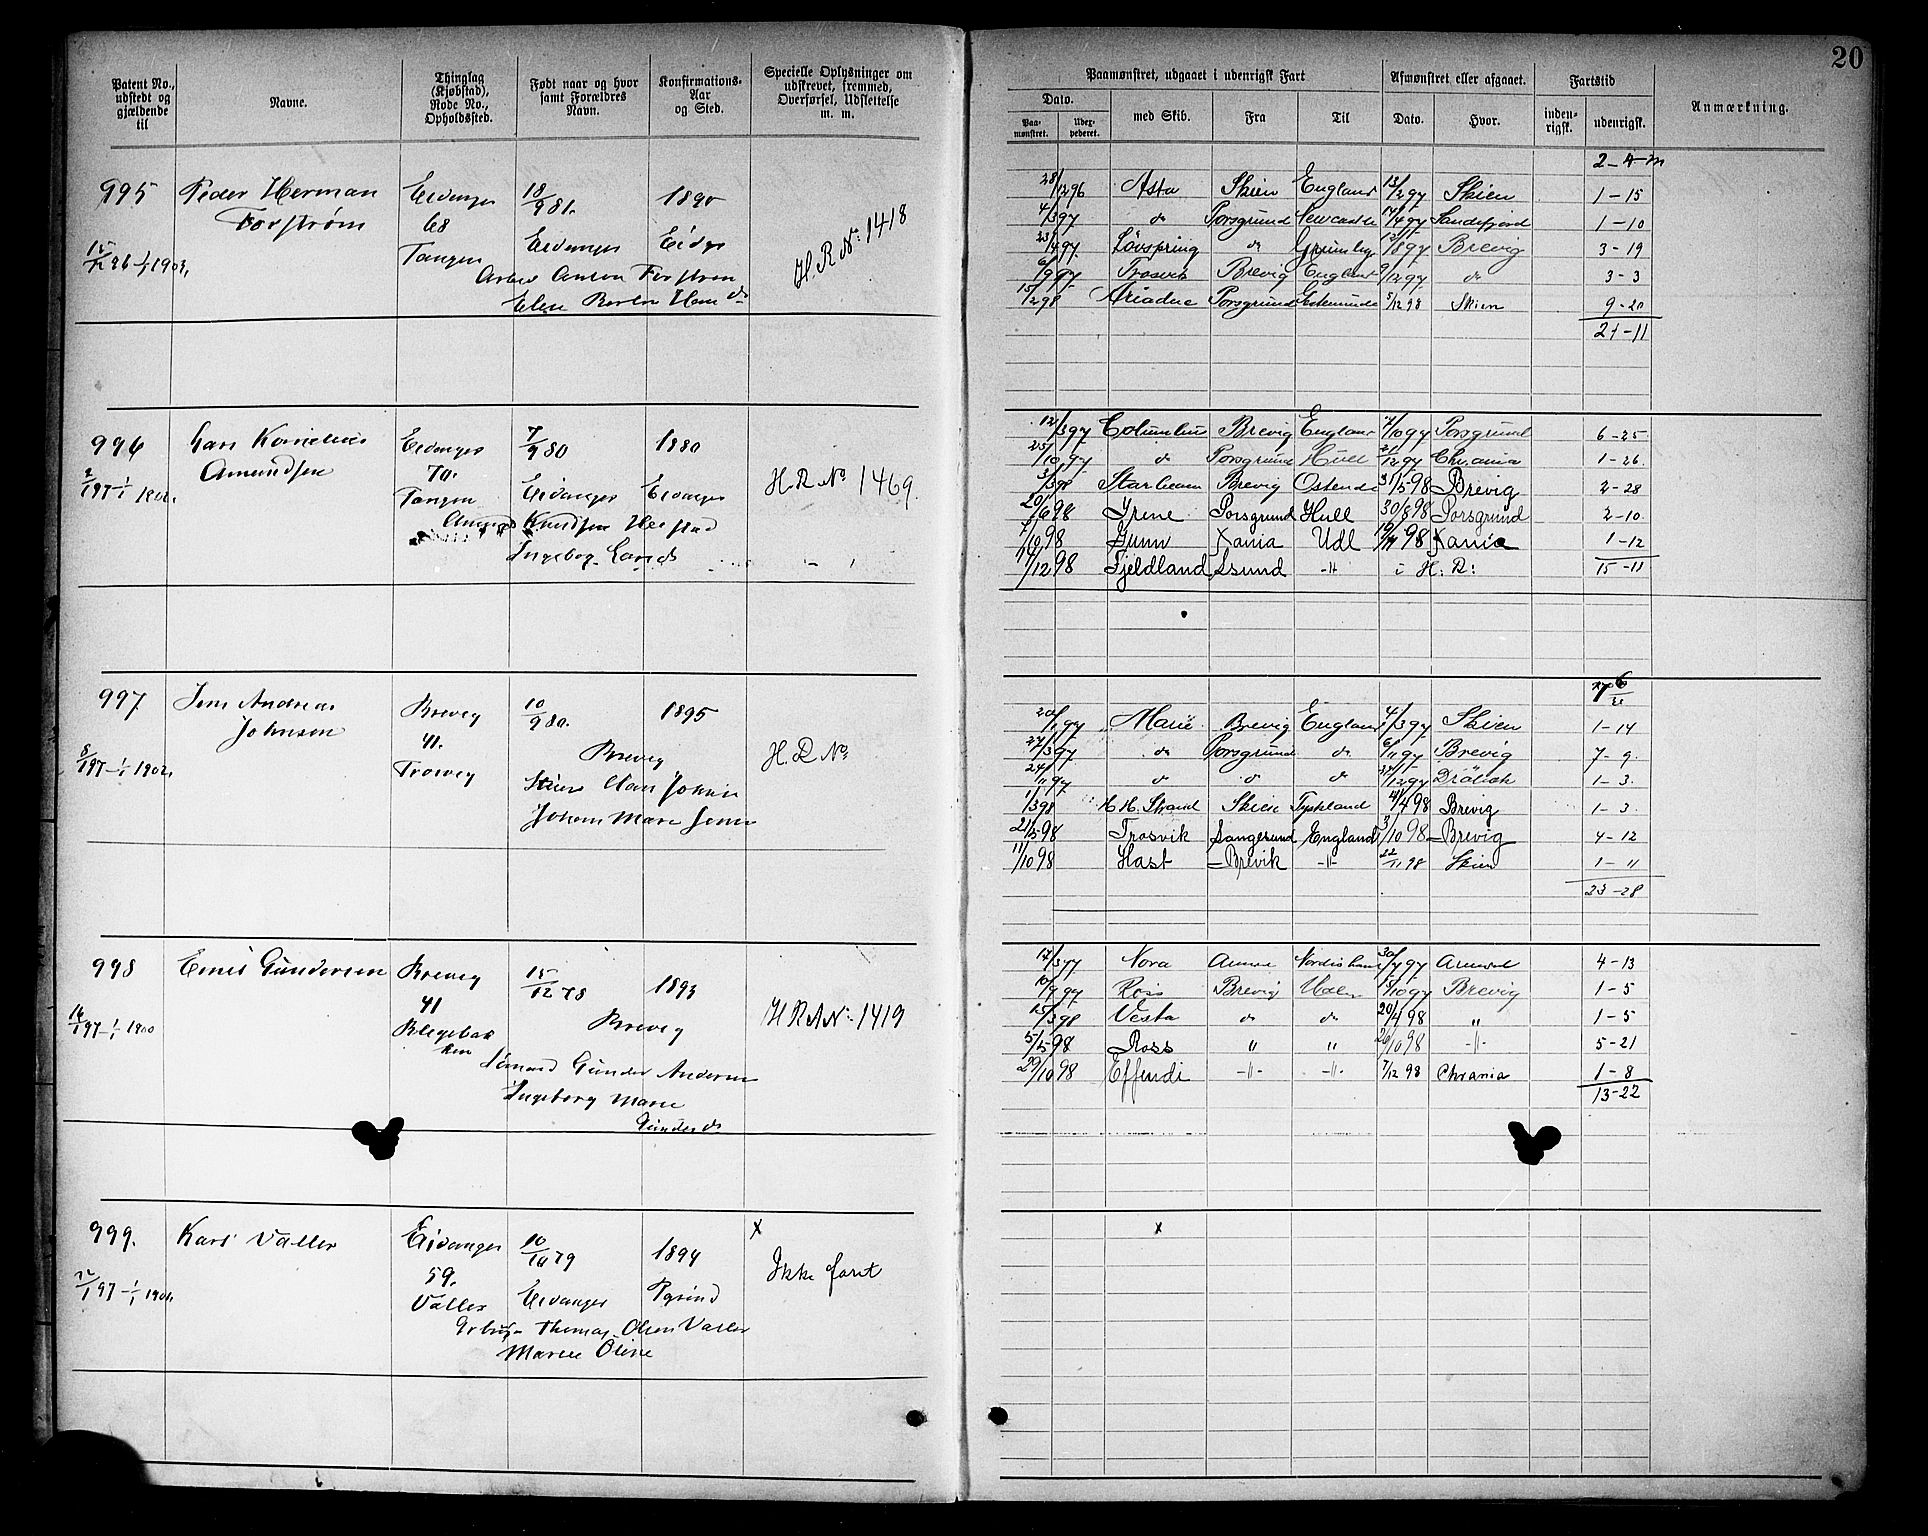 20
Patent No., udstedt og gjældende til
Navne.
Thinglag (Kjøbstad), Rode No., Opholdssted.
Født naar og hvor samt Forældres Navn.
Konfirmations-Aar og Sted.
Specielle Oplysninger om udskrevet, fremmed, Overførsel, Udslettelse m. m.
Paamønstret, udgaaet i udenrigsk Fart
Afmønstret eller afgaaet.
Fartstid
Anmærkning.
Dato.
Paa-mønstret.
Udex-pederet.
med Skib.
Fra
Til
Dato.
Hvor.
inden-rigsk.
udenrigsk.
995 Peder Herman Eidanger 18/9 81. 1890
68
Tangen Eidanger Eidgr
H. R. No. 1418
2-4-m
28/12 96 Asta Skien England 12/2 97 Skien 1-15
4/3 97 do Porsgrund Newcastle 14/4 97 Sandefjord 1-10
23/4 97 Løvspring do Grimsby /8 97 Brevig 3-19
6/9 97 Trosvik Brevig England 9/12 97 do 3-3
15/2 98 Ariadne Porsgrund 5/12 98 Skien 9-20
21-11
996 Lars Kornelius Eidanger 7/9 80 1880
Amundsen 70.
2/1 97 - 1/1 1902. Tangen Eidanger Eidanger
H. R. No 1469.
Amund Knudsen
Ingebor Larsd
12/3 97 Columbus Brevig England 4/10 97 Porsgrund 6-25
25/10 97 do Porsgrund Hull 21/12 97 Chr.ania 1-26.
3/3 98 Starbeam Brevig Ostende 31/5 98 Brevig 2-28
20/6 98 Irene Porsgrund Hull 30/8 98 Porsgrund 2-10
7/10 98 Gunn Xania Udl 19/11 98 Xania 1-12
14/12 98 Fjeldland Lsund -"- i H. R: 15-11
997 Jens Andreas Brevig 10/9 80. 1895
Johnsen 41.
8/1 97 - 1/1 1902. Trosvig Brevig
H. R. No.
20/1 97 Marie Brevig England 4/3 97 Skien 1-14
27/3 97 do Porsgrund do 6/11 97 Brevig 7-9.
24/11 97 do do do 31/12 97 Dröbak 1-3.
1/3 98 H. H. Strand Skien Tyskland 4/4 98 Brevig 1-3
21/5 98 Trosvik Langesund England 3/10 98 Brevig 4-12
11/10 98 Hast Brevik -"- 22/11 98 Skien 1-11
23-28
998 Gundersen Brevig 15/12 78 1893
41
16/1 97 - 1/1 1900 Blegebakken Brevig
H. R. No. 1419
Gunder Andersen
Ingeborg Marie
Gundersd
17/3 97 Nora 30/7 97 4-13
10/9 97 Ross Brevig 15/10 97 Brevig 1-5
15/3 98 Vesta do do 20/4 98 " 1-5
5/5 98 Ross " " 26/10 98 -"- 5-21
29/10 98 Effendi -"- -"- 7/12 98 Chrania 1-8
13-22
999. Karl Valler Eidanger 10/10 79 1894
59.
Valler Eidanger Pgrund
x
Ikke faret
Thomas Olsen Valler
Maren Oline
x